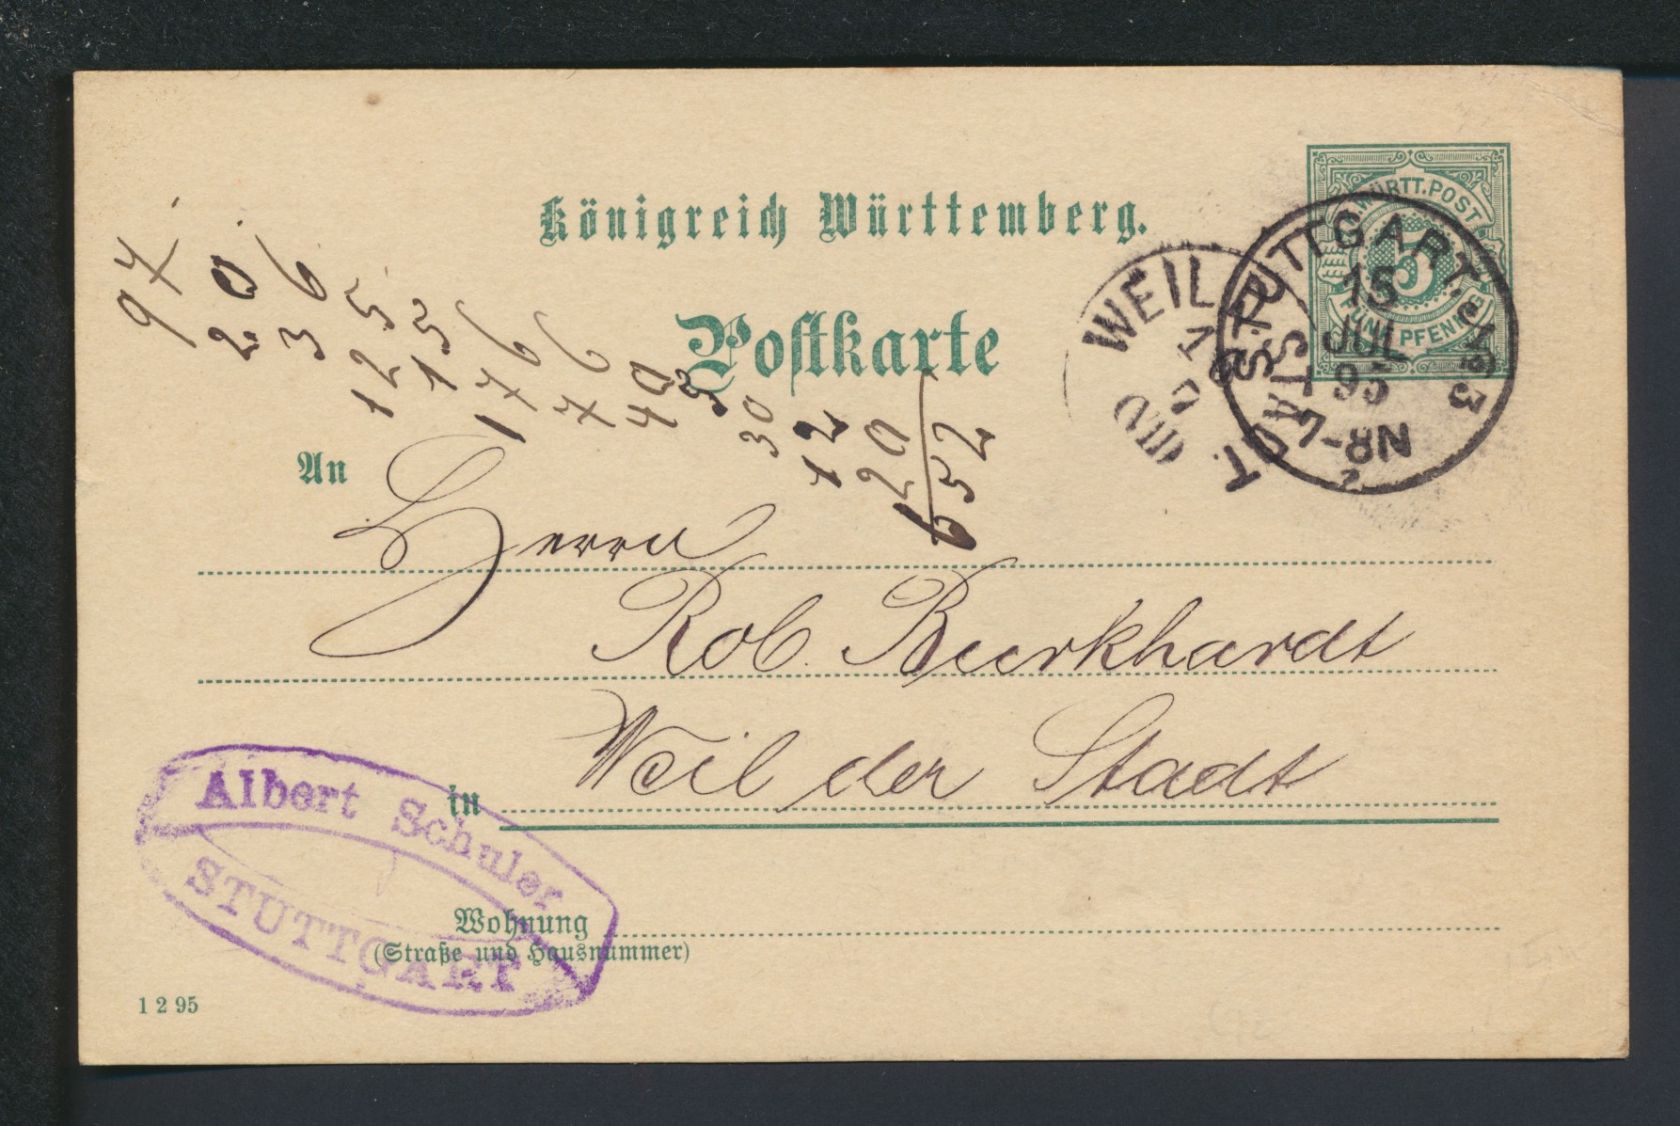 Königreich Württemberg.
WÜRTT. POST
5
FÜNF PFENNIG
STUTTGART. №3
15
JUL
95
WEIL D. STADT.
Postkarte
97
20
36
125
15
176
76
40
30
12
120
652
An
Herrn
Rob. Burkhardt
in Weil der Stadt
Albert Schuler
STUTTGART
Wohnung
(Straße und Hausnummer)
1 2 95